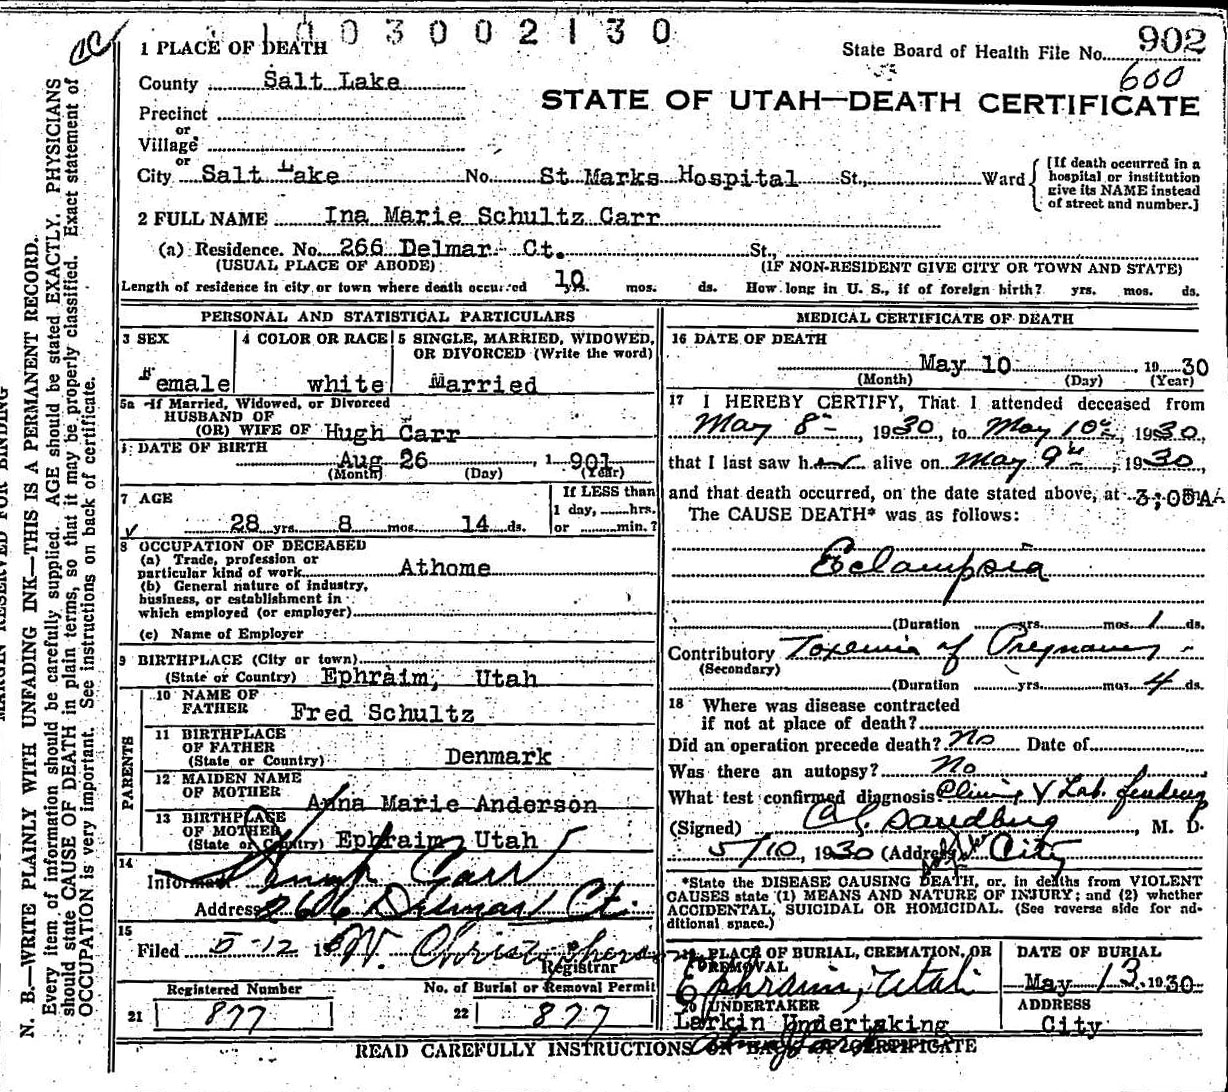 1003002130
1 PLACE OF DEATH
State Board of Health File No. 902
600
County Salt Lake
STATE OF UTAH—DEATH CERTIFICATE
Precinct
or
Village
or
City Salt Lake No. St Marks Hospital St., Ward
[If death occurred in a
hospital or institution
give its NAME instead
of street and number.]
2 FULL NAME Ina Marie Schultz Carr
(a) Residence. No. 266 Delmar Ct. St.,
(USUAL PLACE OF ABODE) (IF NON-RESIDENT GIVE CITY OR TOWN AND STATE)
Length of residence in city or town where death occurred 10 yrs. mos. ds. How long in U. S., if of foreign birth? yrs. mos. ds.
PERSONAL AND STATISTICAL PARTICULARS
3 SEX
Female
4 COLOR OR RACE
white
5 SINGLE, MARRIED, WIDOWED,
OR DIVORCED (Write the word)
Married
5a If Married, Widowed, or Divorced
HUSBAND OF
(OR) WIFE OF Hugh Carr
6 DATE OF BIRTH
Aug 26, 1901
(Month) (Day) (Year)
7 AGE
28 yrs. 8 mos. 14 ds.
If LESS than
1 day, hrs.
or min.?
8 OCCUPATION OF DECEASED
(a) Trade, profession or
particular kind of work Athome
(b) General nature of industry,
business, or establishment in
which employed (or employer)
(c) Name of Employer
9 BIRTHPLACE (City or town)
(State or Country) Ephraim, Utah
PARENTS
10 NAME OF
FATHER Fred Schultz
11 BIRTHPLACE
OF FATHER
(State or Country) Denmark
12 MAIDEN NAME
OF MOTHER Anna Marie Anderson
13 BIRTHPLACE
OF MOTHER
(State or Country) Ephraim Utah
14
Informant Hugh Carr
Address 266 Delmar Ct.
15
Filed 5-12 19
Registrar
Registered Number No. of Burial or Removal Permit
21 877 22 877
MEDICAL CERTIFICATE OF DEATH
16 DATE OF DEATH
May 10 1930
(Month) (Day) (Year)
17 I HEREBY CERTIFY, That I attended deceased from
May 8th, 1930, to May 10th, 1930,
that I last saw her alive on May 9th, 1930,
and that death occurred, on the date stated above, at 3;05A
The CAUSE DEATH* was as follows:
Eclampsia
(Duration yrs. mos. 1 ds.
Contributory Toxemia of Pregnancy
(Secondary)
(Duration yrs. mos. 4 ds.
18 Where was disease contracted
if not at place of death?
Did an operation precede death? No Date of
Was there an autopsy? No
What test confirmed diagnosis Clinic & Lab. findings
(Signed) Sandberg, M. D.
5/10, 1930 (Address) City
*State the DISEASE CAUSING DEATH, or, in deaths from VIOLENT
CAUSES state (1) MEANS AND NATURE OF INJURY; and (2) whether
ACCIDENTAL, SUICIDAL OR HOMICIDAL. (See reverse side for ad-
ditional space.)
19 PLACE OF BURIAL, CREMATION, OR
REMOVAL
Ephraim, Utah
DATE OF BURIAL
May 13, 1930
20 UNDERTAKER
Larkin Undertaking
ADDRESS
City
READ CAREFULLY INSTRUCTIONS ON BACK OF CERTIFICATE
MARGIN RESERVED FOR BINDING
N. B.—WRITE PLAINLY WITH UNFADING INK—THIS IS A PERMANENT RECORD.
Every item of information should be carefully supplied. AGE should be stated EXACTLY. PHYSICIANS
should state CAUSE OF DEATH in plain terms, so that it may be properly classified. Exact statement of
OCCUPATION is very important. See instructions on back of certificate.